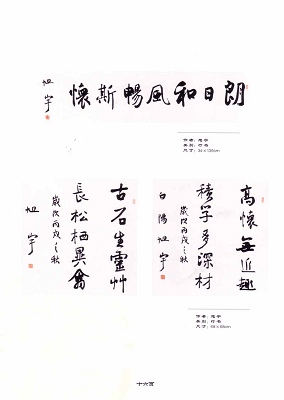 朗日和風暢斯懷
旭宇
作者：旭宇
类别：行书
尺寸：34×138cm
高懷無近趣
積学多深材
歲次丙戌之秋
白陽旭宇
古石生靈艸
長松栖異禽
歲次丙戌之秋
旭宇
作者：旭宇
类别：行书
尺寸：69×68cm
十六页